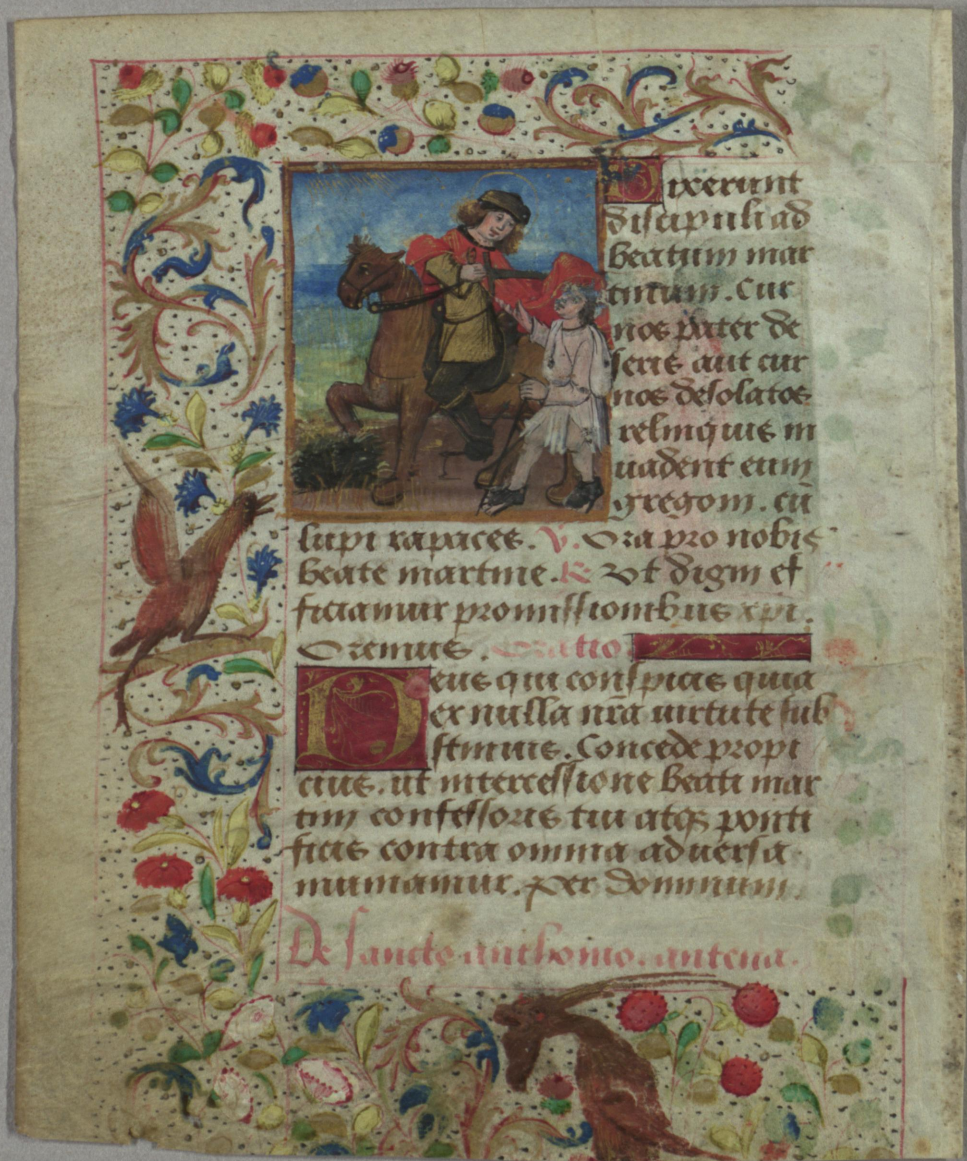 Dixerunt
discipuli ad
beatum mar
tinum. Cur
nos pater de
seris aut cur
nos desolatos
relinquis in
uadent enim
gregem. cū
lupi rapaces. V. Ora pro nobis
beate martine. R Vt digni ef
ficiamur promissionibus xpi.
Oremus. Oratio
Deus qui conspicis quia
ex nulla nr̄a uirtute sub
sistimus. Concede propi
cius. ut intercessione beati mar
tini confessoris tui atqꝫ ponti
ficis contra omnia aduersa
muniamur. per dominum.
De sancto anthonio. antena.